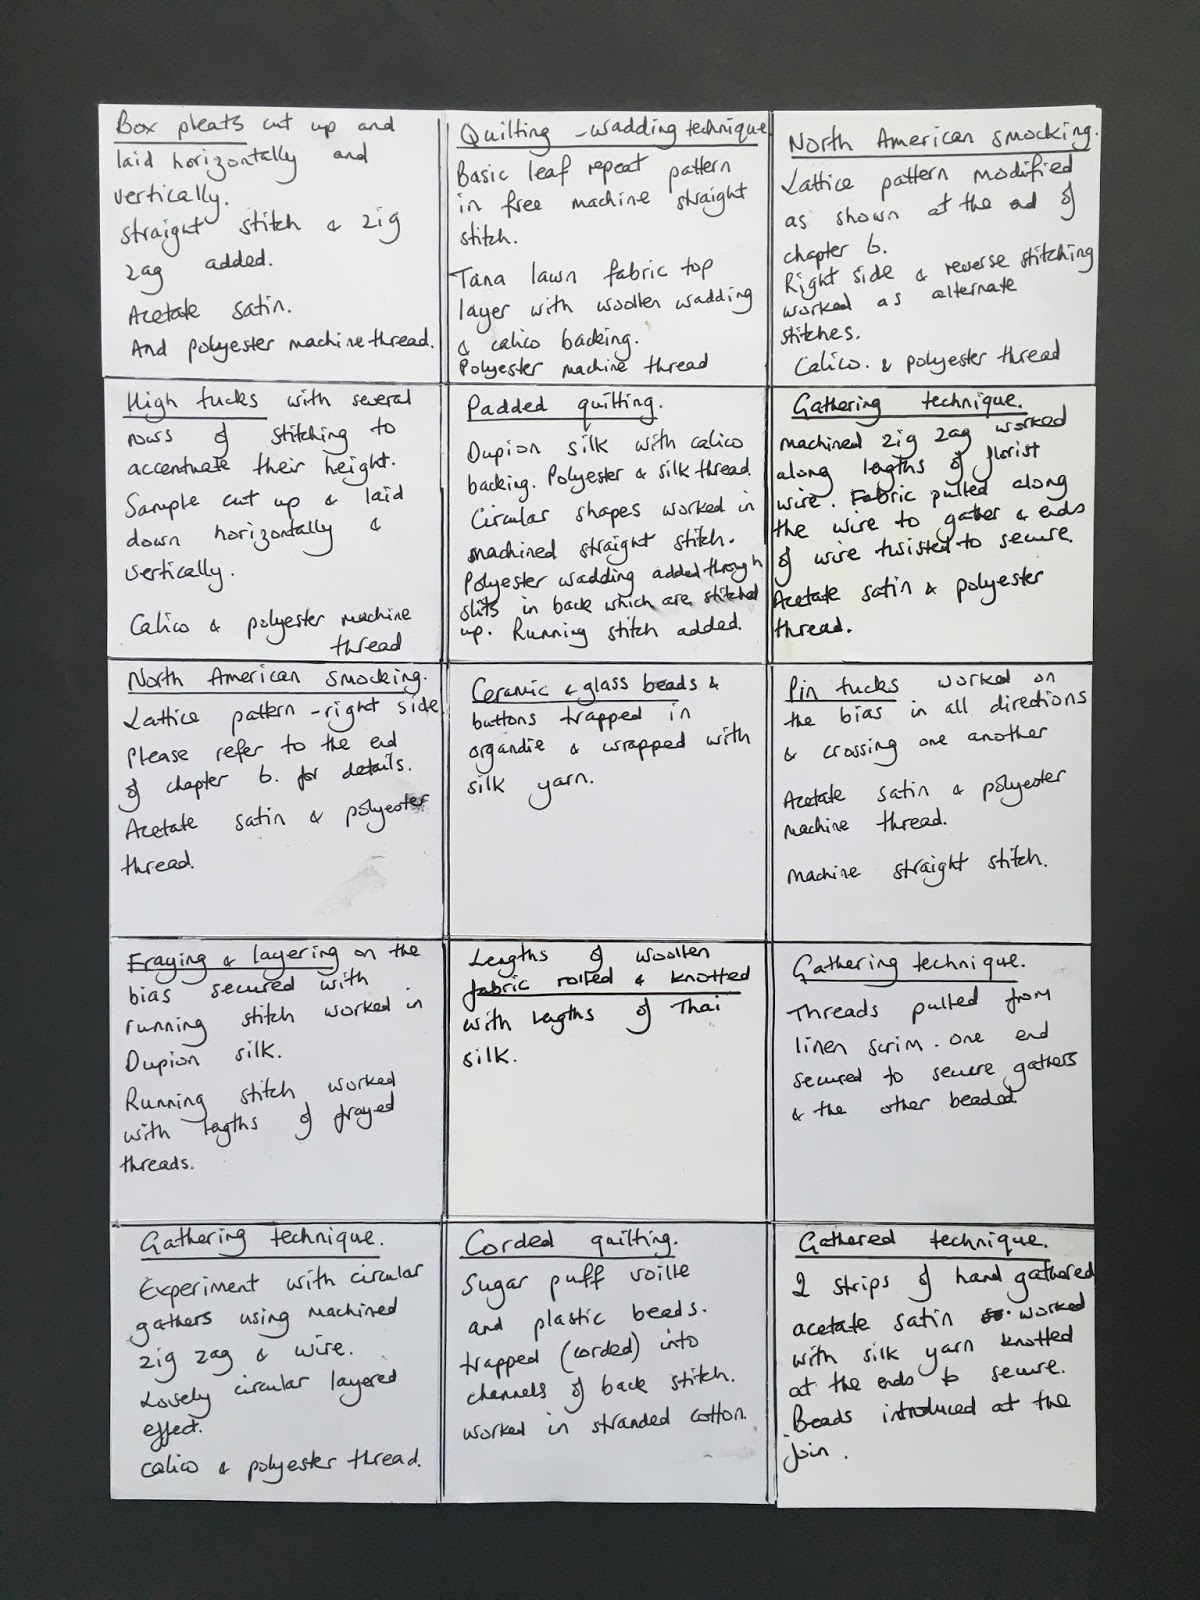 Box pleats cut up and
laid horizontally and
vertically.
straight stitch & zig
zag added.
Acetate satin.
And polyester machine thread.
Quilting - wadding technique
Basic leaf repeat pattern
in free machine straight
stitch.
Tana lawn fabric top
layer with woollen wadding
& calico backing.
Polyester machine thread
North American smocking.
Lattice pattern modified
as shown at the end of
chapter 6.
Right side & reverse stitching
worked as alternate
stitches.
Calico. & polyester thread
High tucks with several
rows of stitching to
accentuate their height.
Sample cut up & laid
down horizontally &
vertically.
Calico & polyester machine
thread
Padded quilting.
Dupion silk with calico
backing. Polyester & silk thread
Circular shapes worked in
machined straight stitch.
Polyester wadding added through
slits in back which are stitched
up. Running stitch added.
Gathering technique.
machined zig zag worked
along lengths of florist
wire. Fabric pulled along
the wire to gather & ends
of wire twisted to secure.
Acetate satin & polyester
thread.
North American smocking.
Lattice pattern - right side
Please refer to the end
of chapter 6. for details.
Acetate satin & polyester
thread.
Ceramic & glass beads &
buttons trapped in
organdie & wrapped with
silk yarn.
Pin tucks worked on
the bias in all directions
& crossing one another
Acetate satin & polyester
machine thread.
machine straight stitch.
Fraying & layering on the
bias secured with
running stitch worked in
Dupion silk.
Running stitch worked
with legths of frayed
threads.
Lengths of woollen
fabric rolled & knotted
with legths of Thai
silk.
Gathering technique.
Threads pulled from
linen scrim. one end
secured to secure gathers
& the other beaded.
Gathering technique.
Experiment with circular
gathers using machined
zig zag & wire.
Lovely circular layered
effect.
calico & polyester thread.
Corded quilting.
Sugar puff voille
and plastic beads.
trapped (corded) into
channels of back stitch.
worked in stranded cotton.
Gathered technique.
2 strips of hand gathered
acetate satin worked
with silk yarn knotted
at the ends to secure.
Beads introduced at the
join.